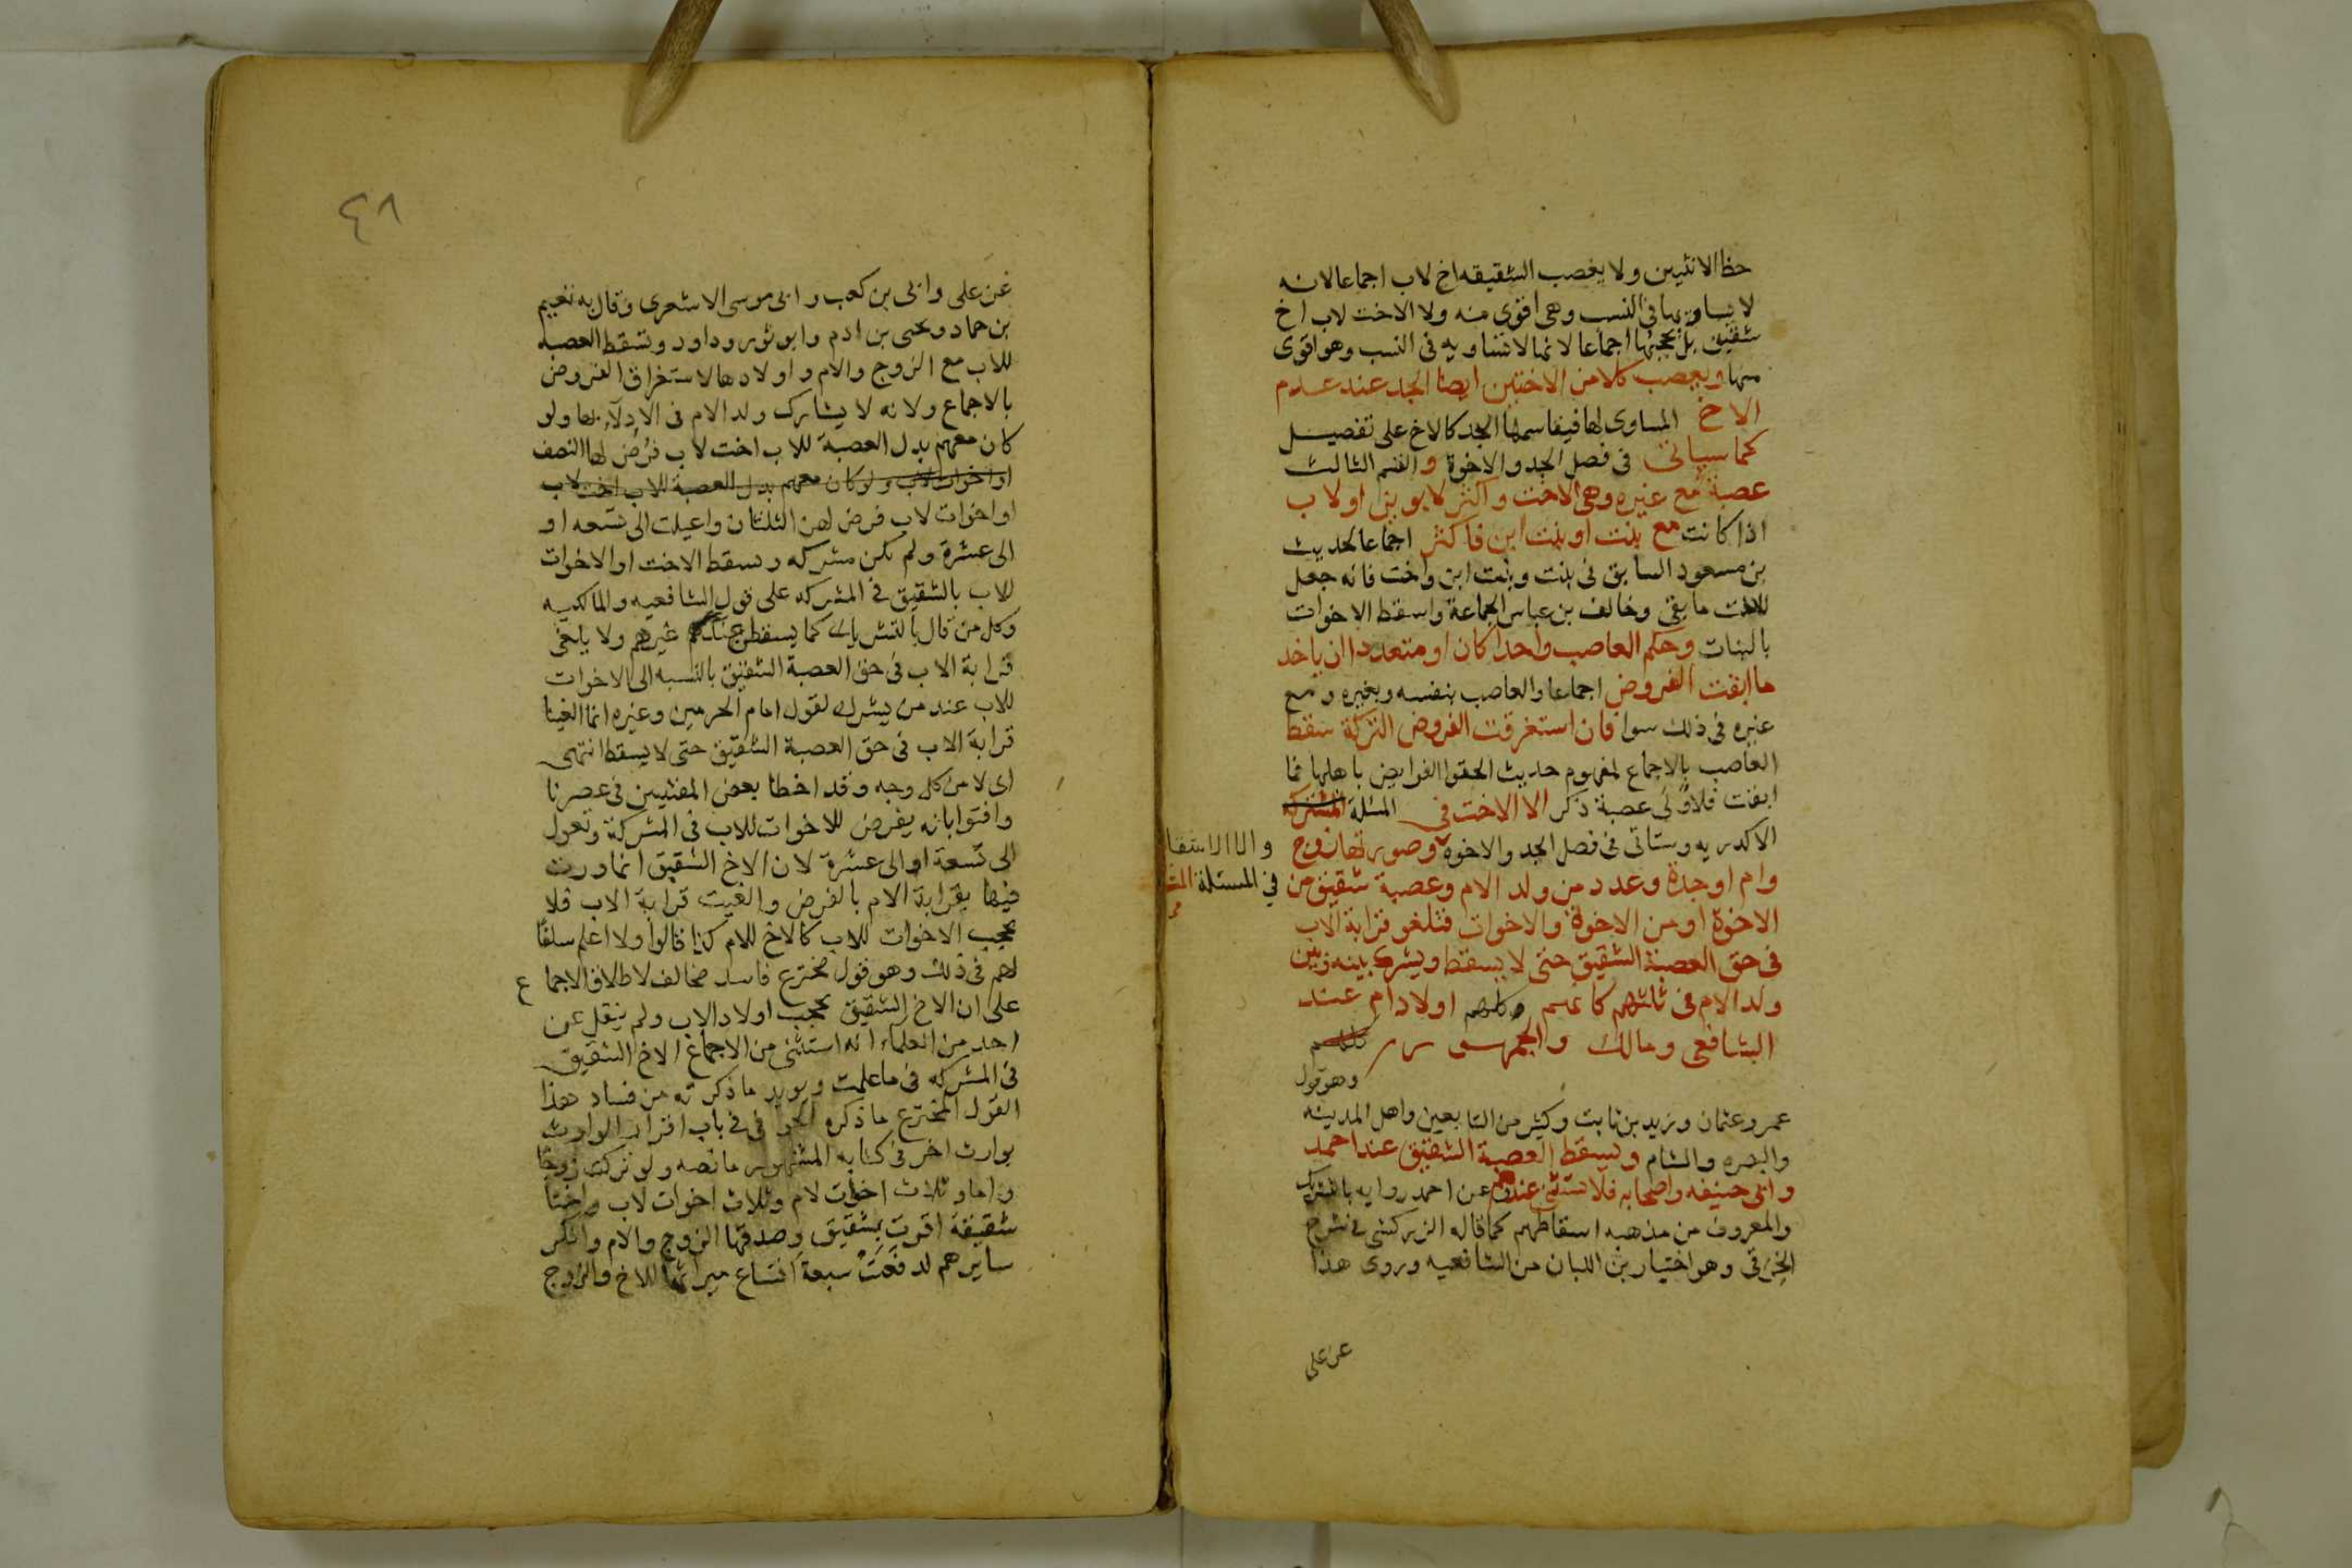 حظ الانثيين ولا يعصب الشقيقه اخ لاب اجماعا لانه
لا يساويها في النسب وهى اقوى منه ولا الاخت لاب اخ
شقيق بل يحجبها اجماعا لانها لا تساويه فى النسب وهو اقوى
منها ويعصب كلا من الاختين ايضا الجد عند عدم
الاخ المساوى لها فيقاسمها الجد كالاخ على تفصيل
كما سياتى فى فصل الجد والاخوة والقسم الثالث
عصبة مع غيره وهى الاخت واكثر لابوين او لاب
اذا كانت مع بنت او بنت ابن فاكثر اجماعا لحديث
بن مسعود السابق فى بنت وبنت ابن واخت فانه جعل
للاخت ما بقى وخالف بن عباس الجماعة واسقط الاخوات
بالبنات وحكم العاصب واحدا كان او متعددا ان ياخذ
ما ابقت الفروض اجماعا والعاصب بنفسه وبغيره ومع
غيره فى ذلك سوا فان استغرقت الفروض التركة سقط
العاصب بالاجماع لمفهوم حديث الحقوا الفرايض باهلها فما
ابقت فلاولى عصبة ذكر الا الاخت فى المسئلة المشتركه
الاكدريه وستاتى فى فصل الجد والاخوة وصورتها زوج
والا الاشقا
وام اوجدة وعدد من ولد الام وعصبة شقيق من
في المسئلة
الاخوة او من الاخوة والاخوات فتلغو قرابة الاب
فى حق العصبة الشقيق حتى لا يسقط ويشرك بينه وبين
ولد الام فى ثلثهم كانهم وكلهم اولاد ام عند
الشافعى ومالك والجمهور
وهو قول
عمر وعثمان وزيد بن ثابت وكثير من التابعين واهل المدينه
والبصره والشام ويسقط العصبة الشقيق عند احمد
وابى حنيفه واصحابه فلا تستثنى عندهم عن احمد روايه بالتشريك
والمعروف من مذهبه اسقاطهم كما قاله الزركشى فى شرح
الخرقى وهو اختيار بن اللبان من الشافعيه وروى هذا
عن على
٤٨
عن على وابى بن كعب وابى موسى الاشعرى وقال به نعيم
بن حماد ويحيى بن ادم وابو ثور وداود ويسقط العصبه
للاب مع الزوج والام واولادها لاستغراق الفروض
بالاجماع ولانه لا يشارك ولد الام فى الادلاء بها ولو
كان معهم بدل العصبة للاب اخت لاب فرض لها النصف
او اخوات لاب ولو كان معهم بدل العصبة للاب اخت لاب
او اخوات لاب فرض لهن الثلثان واعيلت الى تسعه او
الى عشرة ولم تكن مشركه ويسقط الاخت او الاخوات
للاب بالشقيق فى المشركه على قول الشافعيه والمالكيه
وكل من قال بالتشريك كما يسقطن عند غيرهم ولا يلغى
قرابة الاب فى حق العصبة الشقيق بالنسبه الى الاخوات
للاب عند من يشرك لقول امام الحرمين وغيره انما الغينا
قرابة الاب فى حق العصبة الشقيق حتى لا يسقط انتهى
اى لا من كل وجه وقد اخطا بعض المفتيين فى عصرنا
وافتوا بانه يفرض للاخوات للاب فى المشركة وتعول
الى تسعة او الى عشرة لان الاخ الشقيق انما ورث
فيها بقرابة الام بالفرض والغيت قرابة الاب فلا
يحجب الاخوات للاب كالاخ للام كذا قالوا ولا اعلم سلفا
لهم فى ذلك وهو قول مخترع فاسد مخالف لاطلاق الاجماع
على ان الاخ الشقيق يحجب اولاد الاب ولم ينقل عن
احد من العلماء انه استثنى من الاجماع الاخ الشقيق
فى المشركه فى ما علمت ويويد ما ذكرته من فساد هذا
القول المخترع ما ذكره فى باب اقرار الوارث
بوارث اخر فى كتابه المشهور ما نصه ولو تركت زوجا
واما وثلاث اخوات لام وثلاث اخوات لاب واختا
شقيقة اقرت بشقيق وصدقها الزوج والام وانكر
سايرهم لدفعت سبعة اتساع ميراثها للاخ والزوج